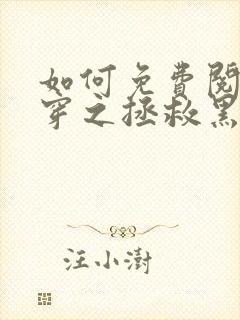 如何免費閱
穿之拯救黑
汪小澍